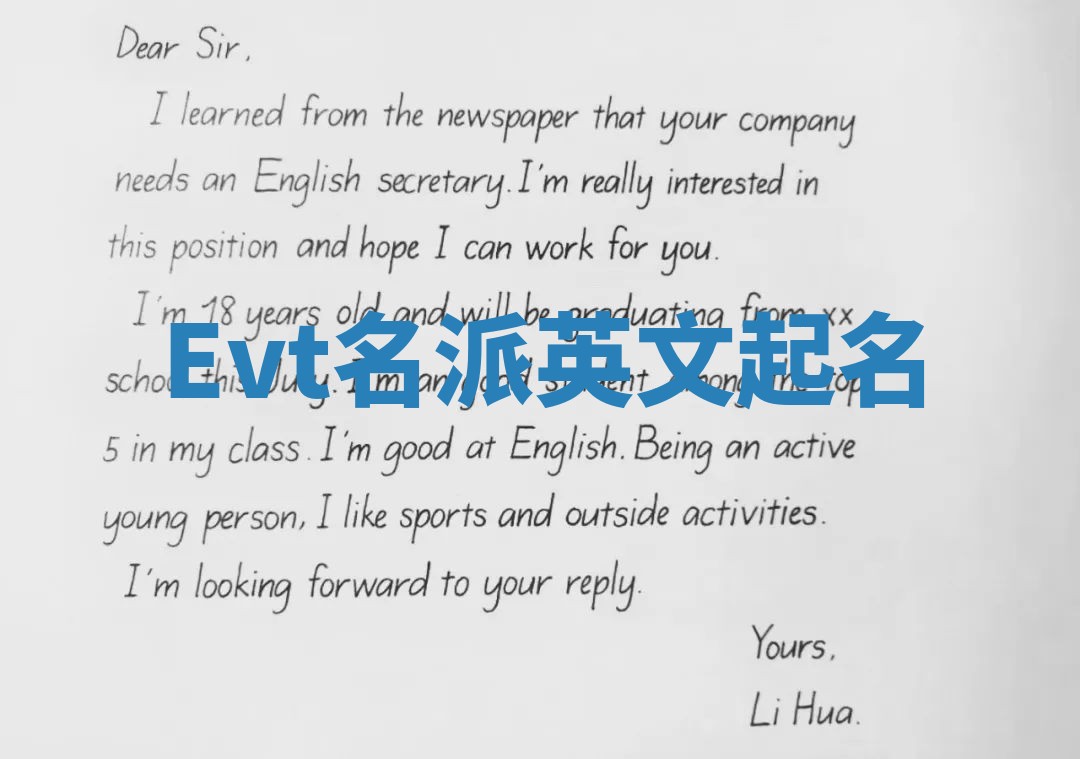 Dear Sir,
I learned from the newspaper that your company
needs an English secretary. I'm really interested in
this position and hope I can work for you.
I'm 18 years old and will be graduating from xx
Evt名派英文起名
school this July. I'm an good student among the top
5 in my class. I'm good at English. Being an active
young person, I like sports and outside activities.
I'm looking forward to your reply.
Yours,
Li Hua.